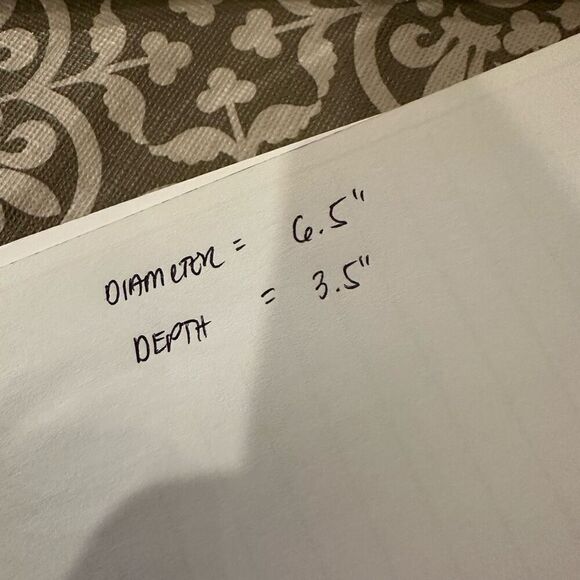 DIAMETER = 6.5"
DEPTH = 3.5"